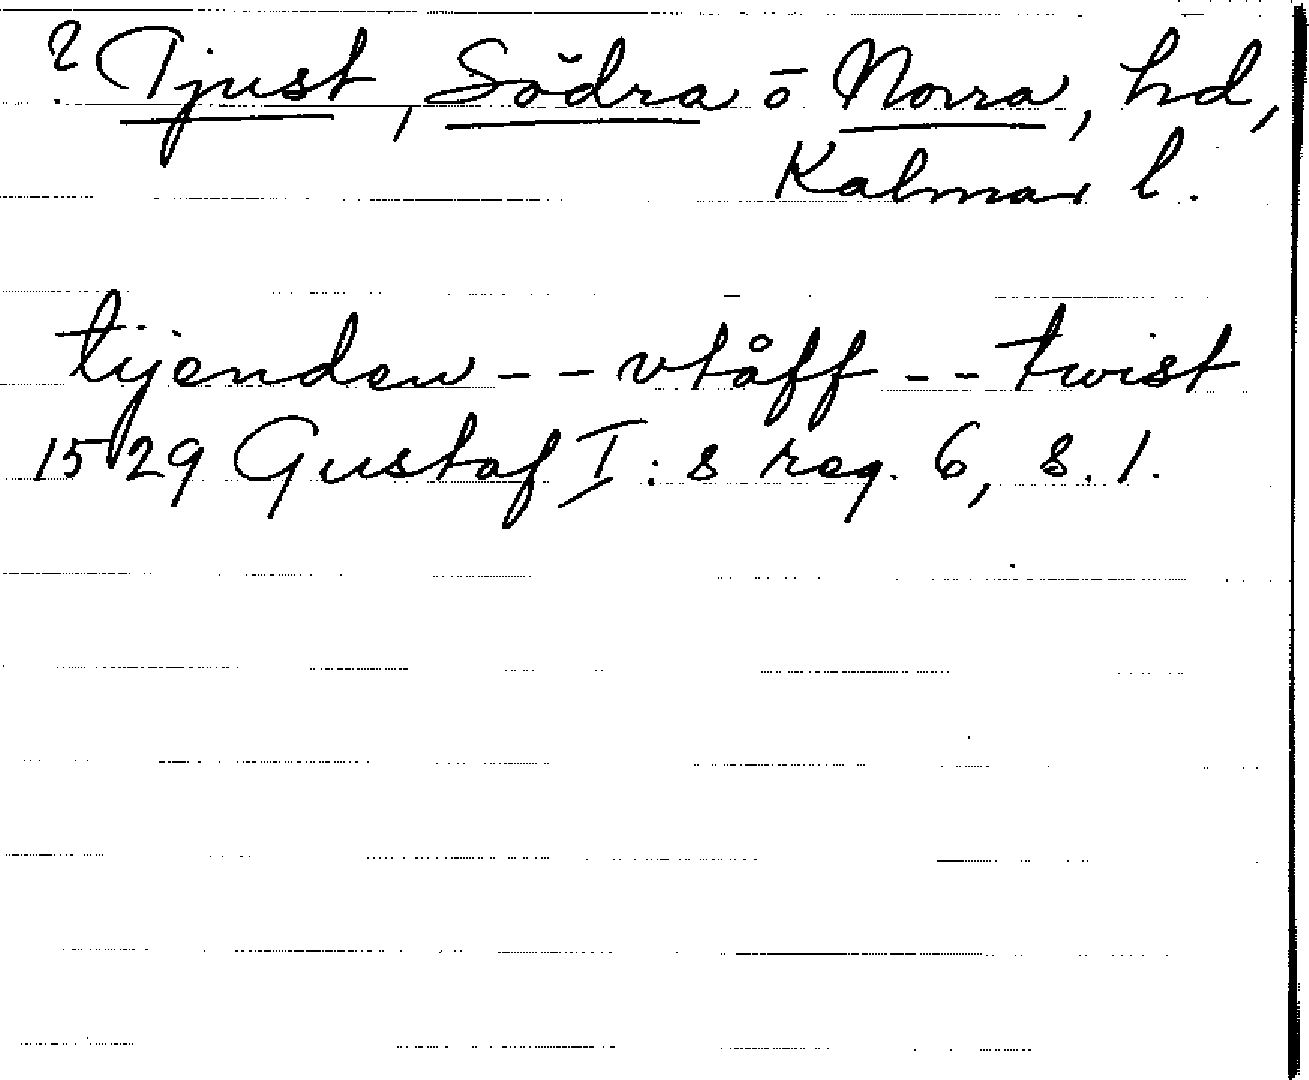 ? Tjust, Södra o Norra, hd,
Kalmar l.
tijenden -- vtåff -- twist
1529 Gustaf I:s reg. 6, s. 1.